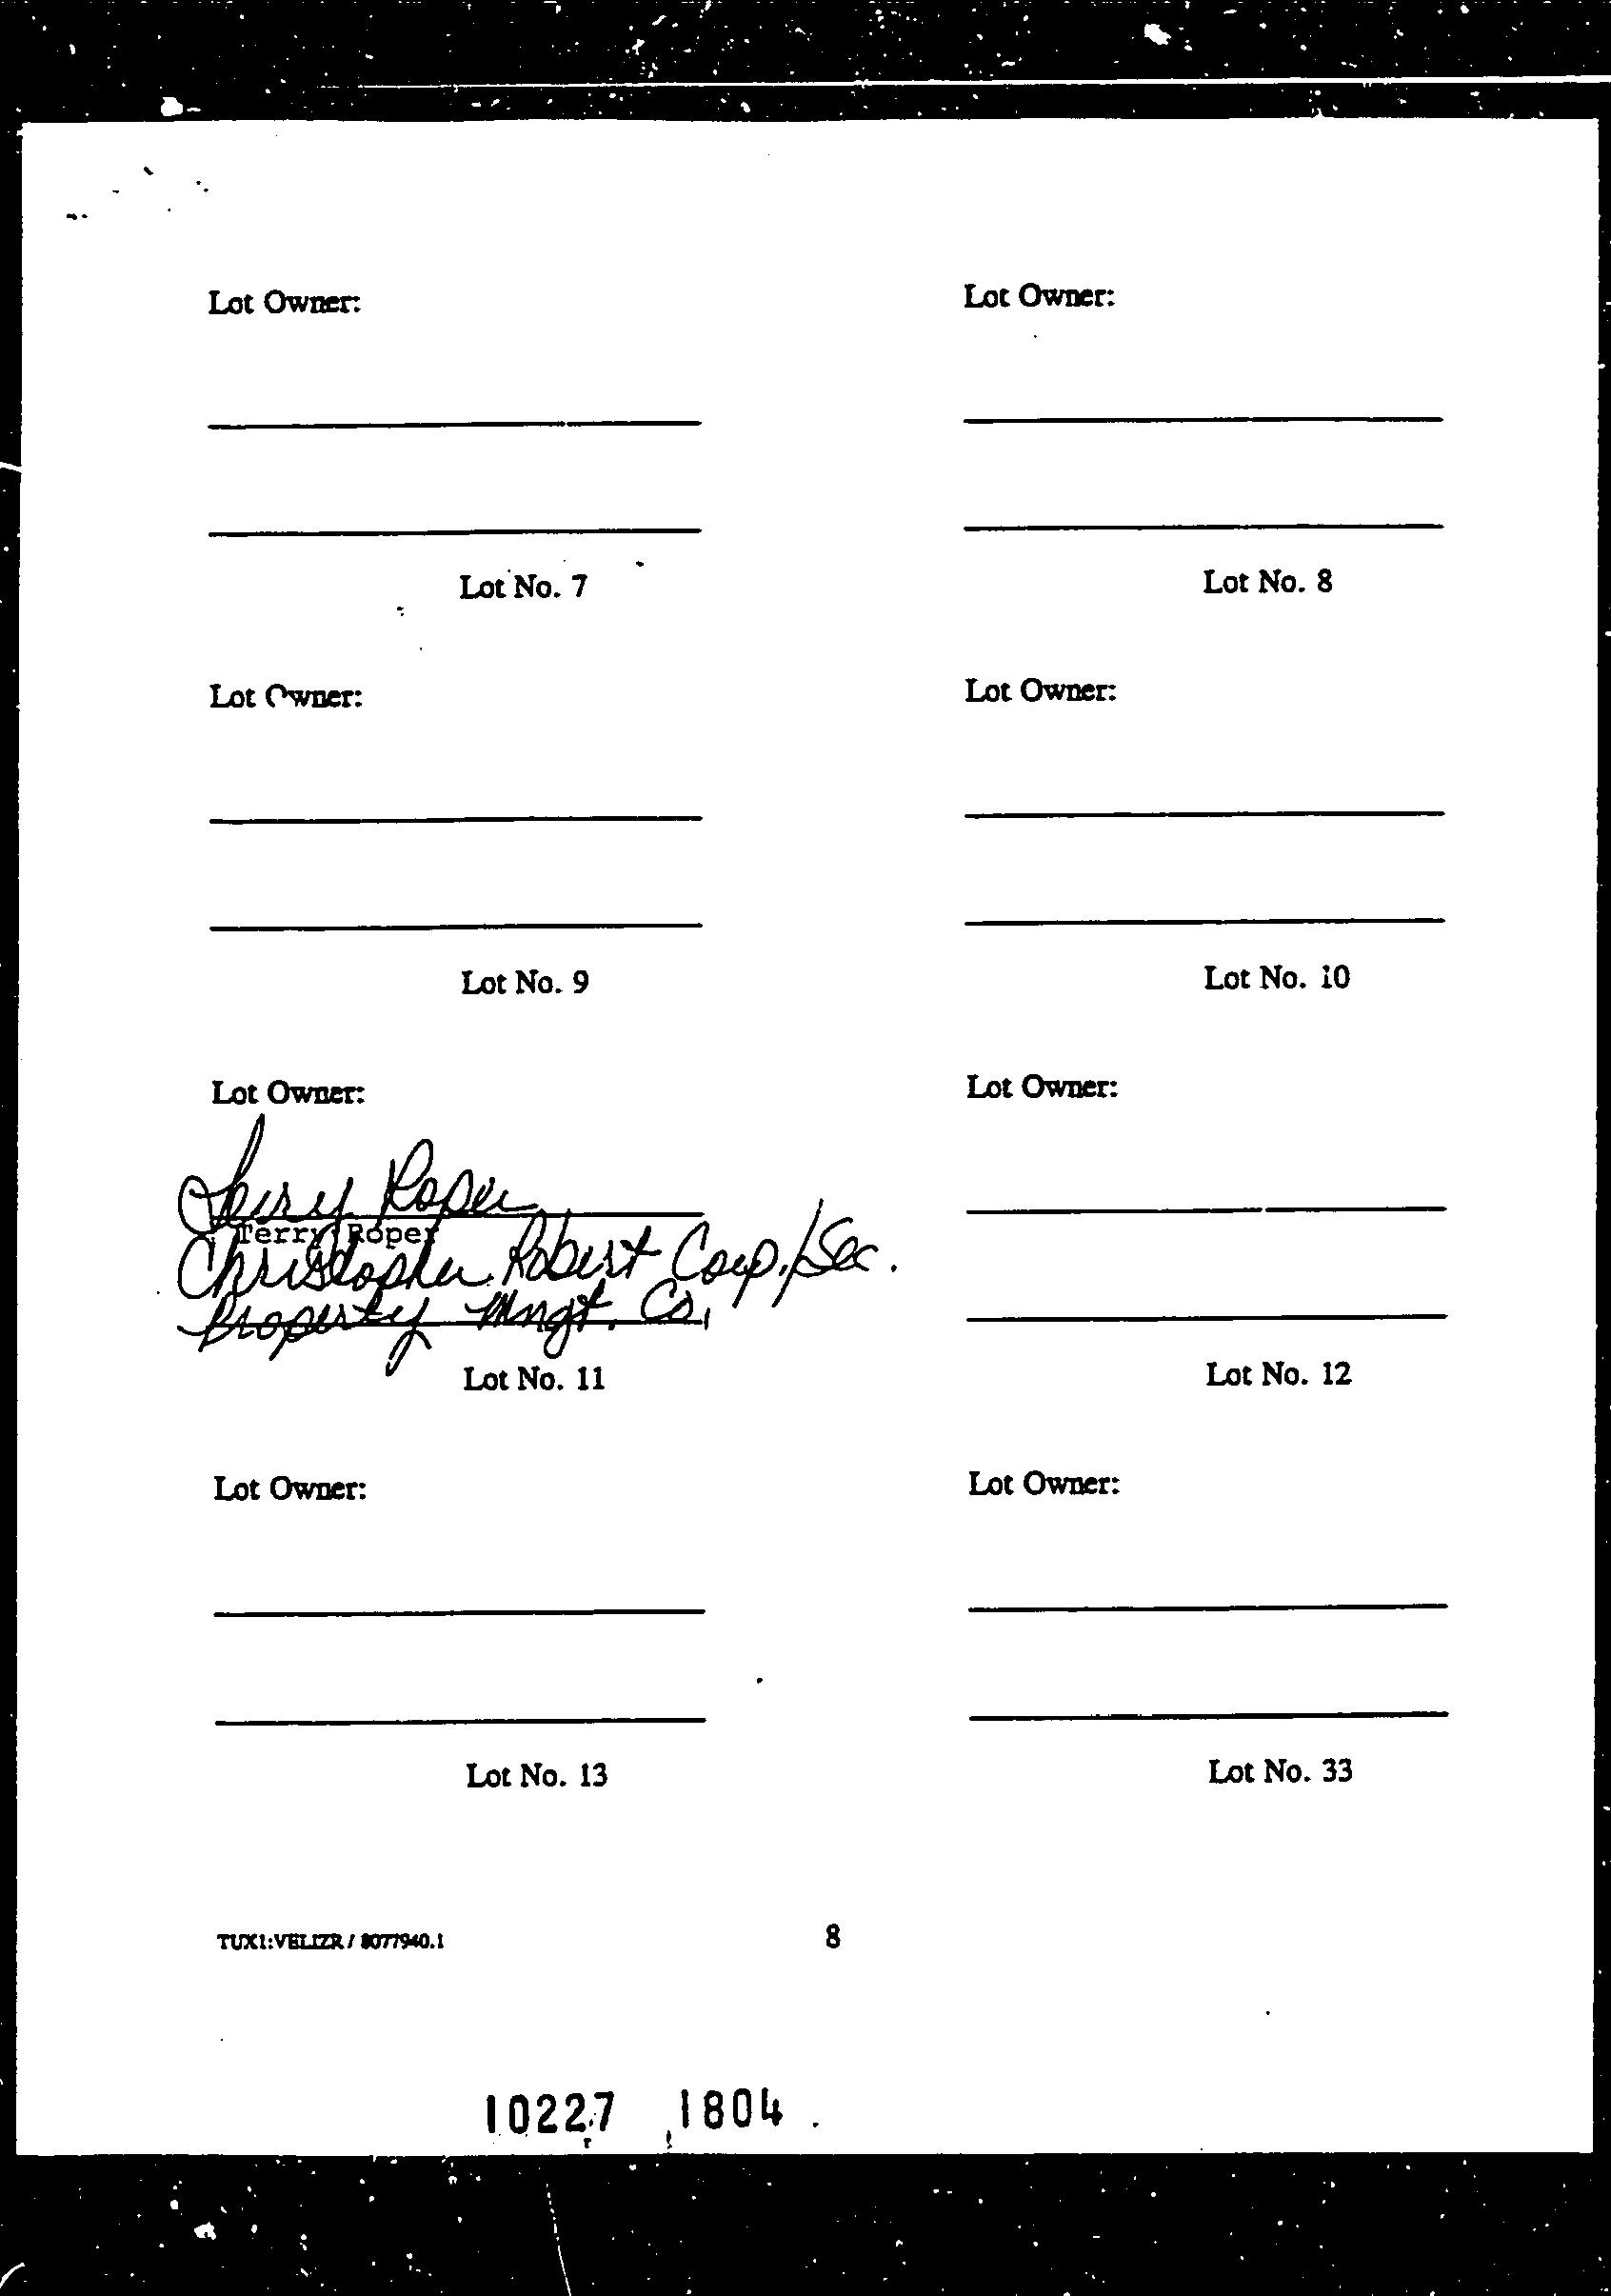 Lot Owner:
Lot Owner:
Lot No. 7
Lot No. 8
Lot Owner:
Lot Owner:
Lot No. 9
Lot No. 10
Lot Owner:
Lot Owner:
Terry Roper
Terry Roper
Christopher Robert Corp./Sec.
Property Mngt. Co.
Lot No. 11
Lot No. 12
Lot Owner:
Lot Owner:
Lot No. 13
Lot No. 33
TUX1:VELIZR / 8077940.1
8
10227 1804